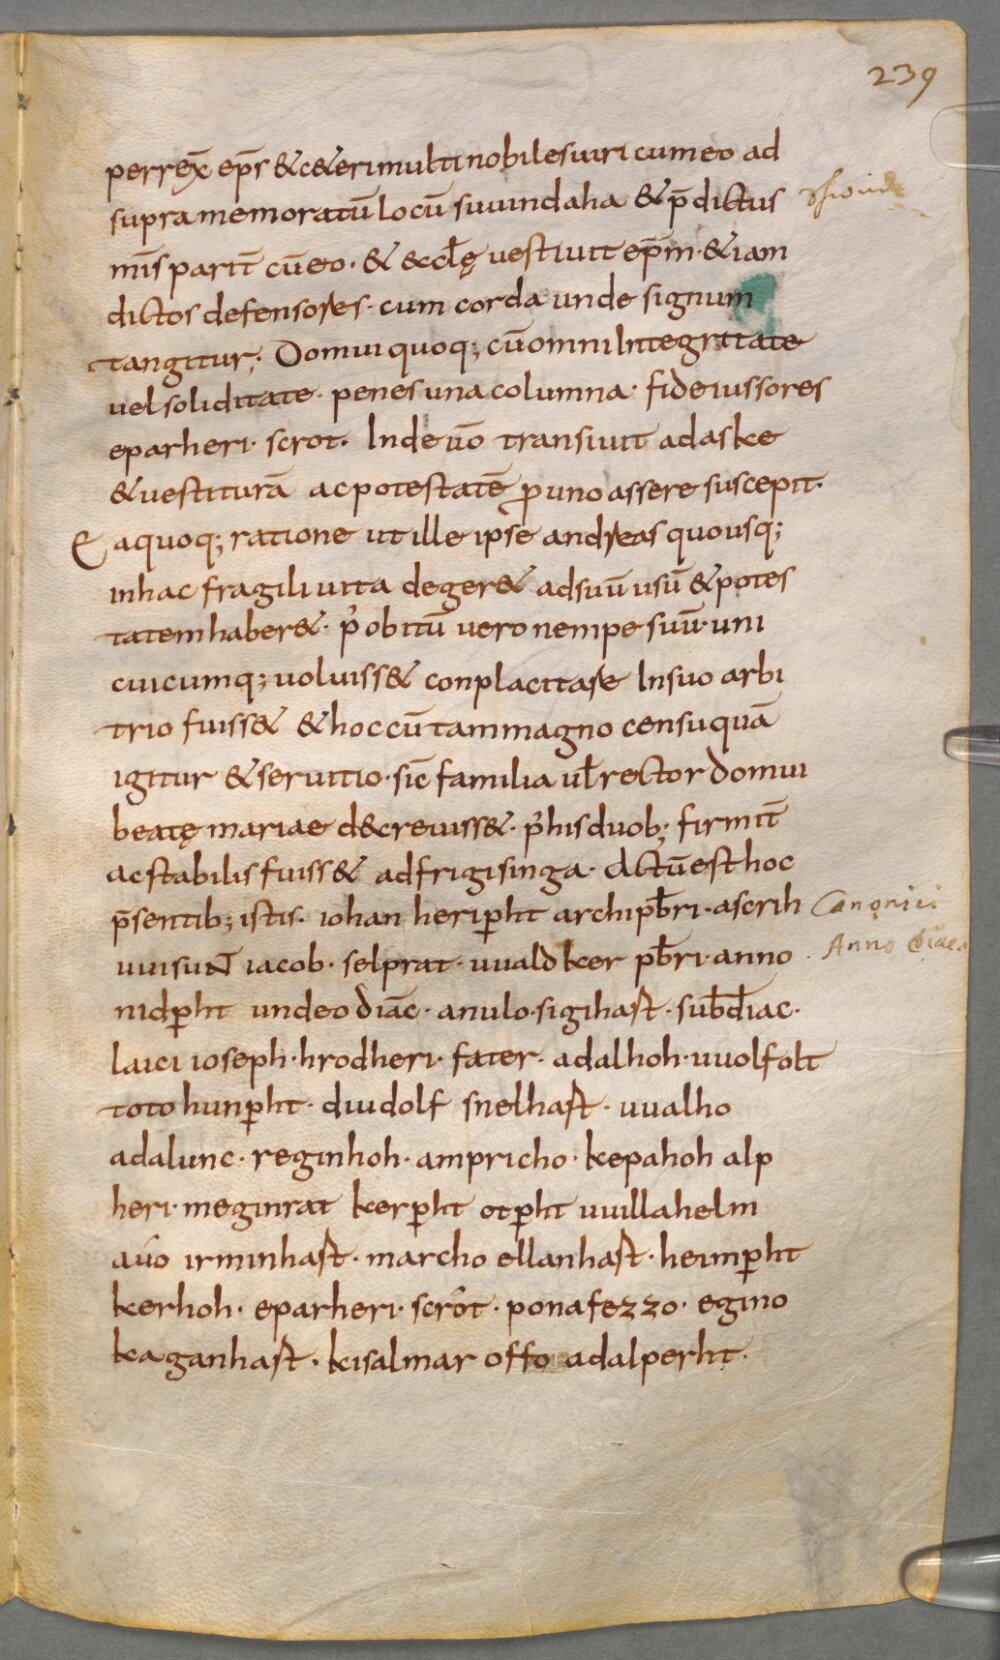 239
perrex̄ ep̄s & c&eri multi nobiles uiri cum eo ad
supra memoratū locū suuindaha & p̄dictus
mīs parit̄ cū eo · & eccl̄ę uestiuit ep̄m · & iam
dictos defensores · cum corda unde signum
tangitur; Domui quoq; cū omni Integritate
uel soliditate · penes una columna · fideiussores
eparheri · scrot · Inde ūo transiuit ad aske
& uestiturā ac potestatē ꝑ uno assere suscepit ·
Ea quoq; ratione ut ille ipse andreas quousq;
in hac fragili uita deger& ad suū usū & potes
tatem haber& · p̓ obitū uero nempe suū · uni
cuicumq; uoluiss& conplacitare In suo arbi
trio fuiss& & hoc cū tam magno censu quā
igitur & seruitio · sic̄ familia ul̄ rector domui
beatę mariae decreuiss& · p̓ his duob; firmit̄
ac stabilis fuiss& ad frigisinga · Actū est hoc
p̄sentib; istis · iohan heriꝑht archipb̄ri · ascrih
uuisuNT iacob · selprat · uualdker pb̄ri · anno
nidꝑht undeo diāc · anulo · sigihast · subd̄iac ·
laici ioseph · hrodheri · fater · adalhoh · uuolfolt
toto hunꝑht · diudolf snelhast · uualho
adalunc · reginhoh · ampricho · kepahoh alp
heri · meginrat kerꝑht otꝑht uuillahelm
aūo irminhast · marcho ellanhast · heimꝑht
kerhoh · eparheri · scrôt · ponafezzo · egino
kaganhast · kisalmar offo adalperht ·
Canonici
Anno diac.